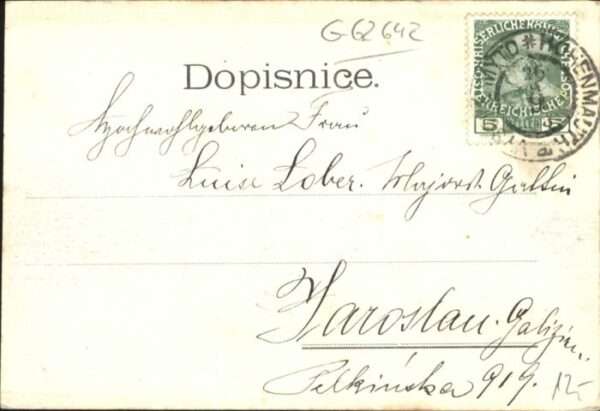 G G2 642
Dopisnice.
KAISERLICHE KÖNIGLICHE
ÖSTERREICHISCHE POST
5 HELLER 5
HOHENMAUTH * VYS. MÝTO
26
Hochwohlgeboren Frau
Luise Lober. Majors Gattin
Jaroslau. Galizien.
Pełkińska 919.
12-